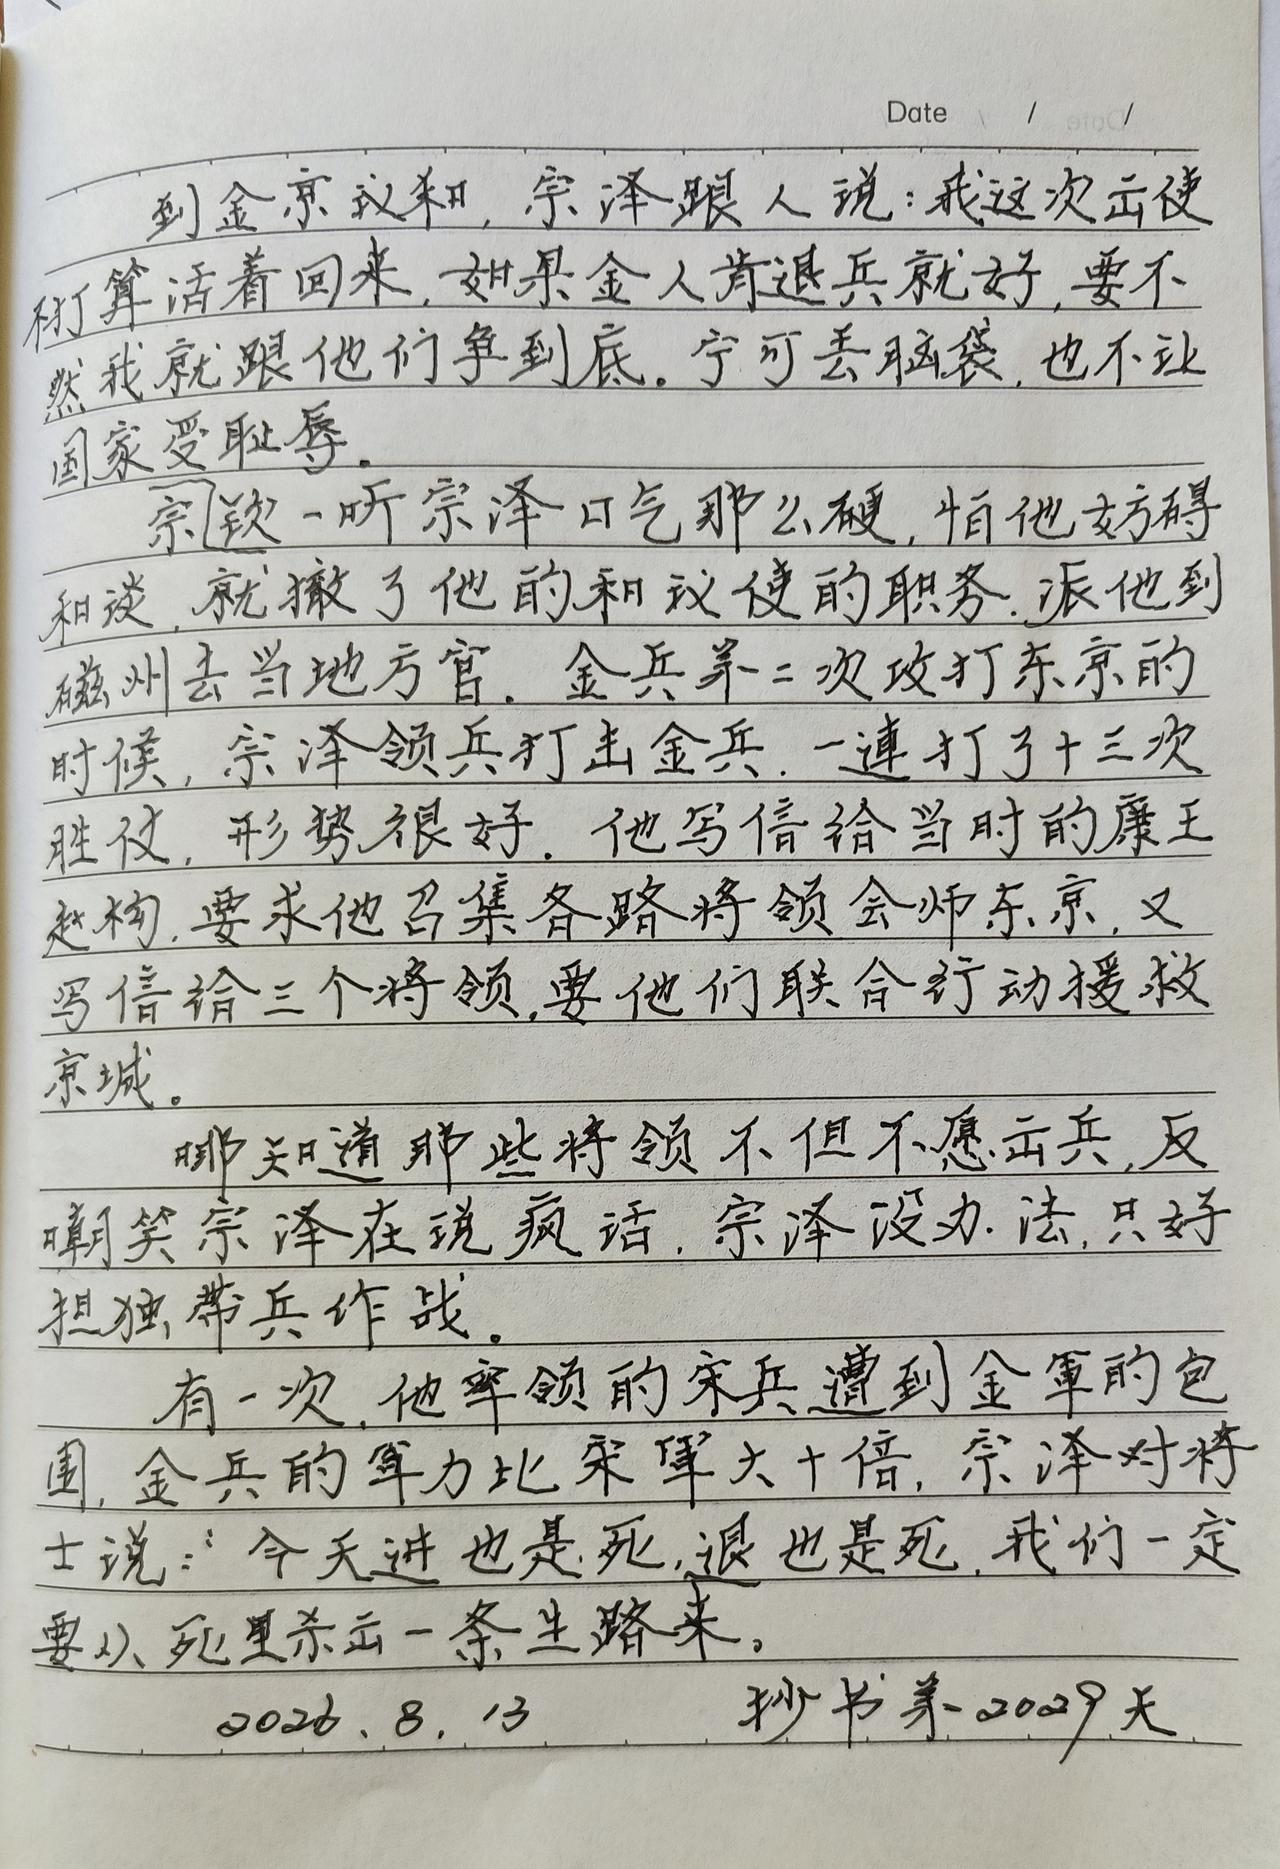 Date / /
到金京议和，宗泽跟人说：我这次出使
不打算活着回来，如果金人肯退兵就好，要不
然我就跟他们争到底。宁可丢脑袋，也不让
国家受耻辱。
宗钦一听宗泽口气那么硬，怕他妨碍
和谈，就撤了他的和议使的职务，派他到
磁州去当地方官。金兵第二次攻打东京的
时候，宗泽领兵打击金兵，一連打了十三次
胜仗，形势很好。他写信给当时的康王
赵构，要求他召集各路将领会师东京，又
写信给三个将领，要他们联合行动援救
京城。
哪知道那些将领不但不愿出兵，反
嘲笑宗泽在说疯话，宗泽没办法，只好
担独带兵作战。
有一次，他率领的宋兵遭到金軍的包
围，金兵的軍力比宋軍大十倍，宗泽对将
士说：“今天进也是死，退也是死，我们一定
要从死里杀出一条生路来。
2026.8.13 抄书第2029天